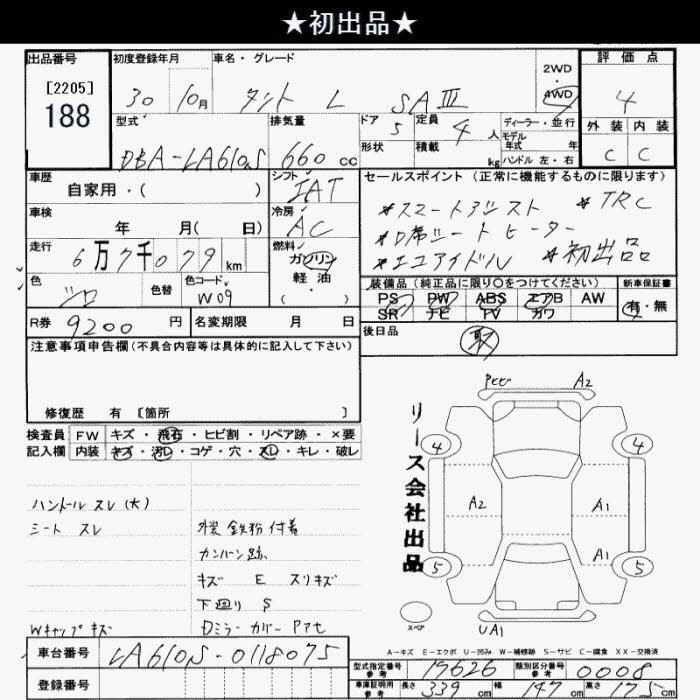 ★初出品★
出品番号
[2205]
188
初度登録年月
30 10月
車名・グレード
タント L SAⅢ
2WD
4WD
評価点
4
外装 内装
C C
型式
DBA-LA610S
排気量
660 cc
ドア 5
定員 4 人
形状
積載 kg
ディーラー・並行
モデル年式 年
ハンドル 左・右
車歴
自家用・( )
シフト
IAT
冷房
AC
車検
年 月( 日)
走行
6万7千079 km
燃料
ガソリン
軽油
( ・ )
色
シロ
色替
色コード
W09
R券 9200 円
名変期限 月 日
セールスポイント (正常に機能するものに限ります)
*スマートアシスト *TRC
*D席シートヒーター
*エコアイドル *初出品
装備品(純正品に限り○をつけてください)
PS PW ABS エアB AW
SR ナビ TV カワ
新車保証書
有・無
後日品
取
注意事項申告欄(不具合内容等は具体的に記入して下さい)
修復歴 有 [箇所 ]
検査員記入欄
FW キズ・飛石・ヒビ割・リペア跡・×要
内装 キズ・汚レ・コゲ・穴・スレ・キレ・破レ
ハンドル スレ(大)
シート スレ
外装 鉄粉付着
カンバン跡
キズ E スリキズ
下廻り S
Wキャップキズ
Dミラーカバー Pアセ
リース会社出品
Pヒビ A2
4 4
A2 A1
A1
5 5
スペア
UA1
A-キズ E-エクボ U-凹み W-補修跡 S-サビ C-腐食 XX-交換済
車台番号 LA610S-0118075
登録番号
型式指定番号 参考 19626
類別区分番号 参考 0008
車庫証明用 参考 長さ 339 cm 幅 147 cm 高さ 175 cm